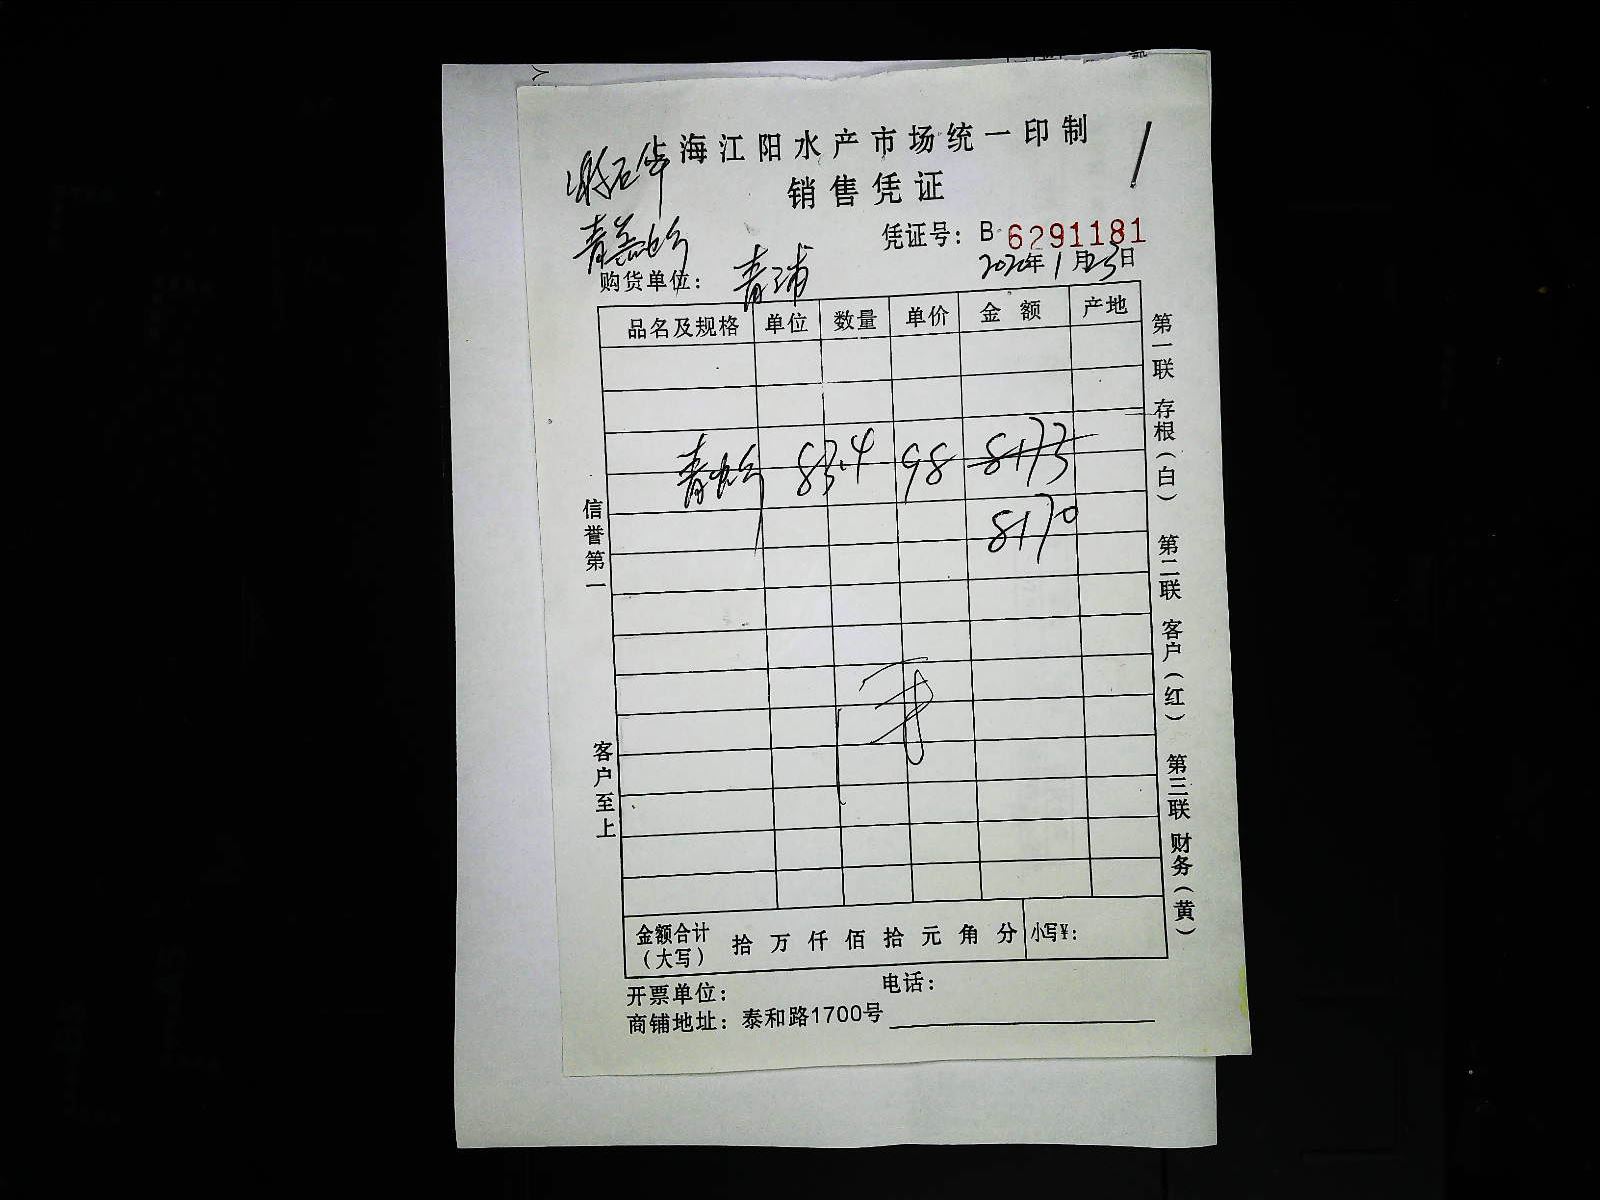 海江阳水产市场统一印制
销售凭证
凭证号：B 6291181
2020年1月23日
购货单位：青浦
品名及规格 单位 数量 单价 金额 产地
83.4 98 8173
8170
金额合计（大写） 拾 万 仟 佰 拾 元 角 分 小写¥：
开票单位： 电话：
商铺地址：泰和路1700号
信誉第一
客户至上
第一联 存根（白） 第二联 客户（红） 第三联 财务（黄）